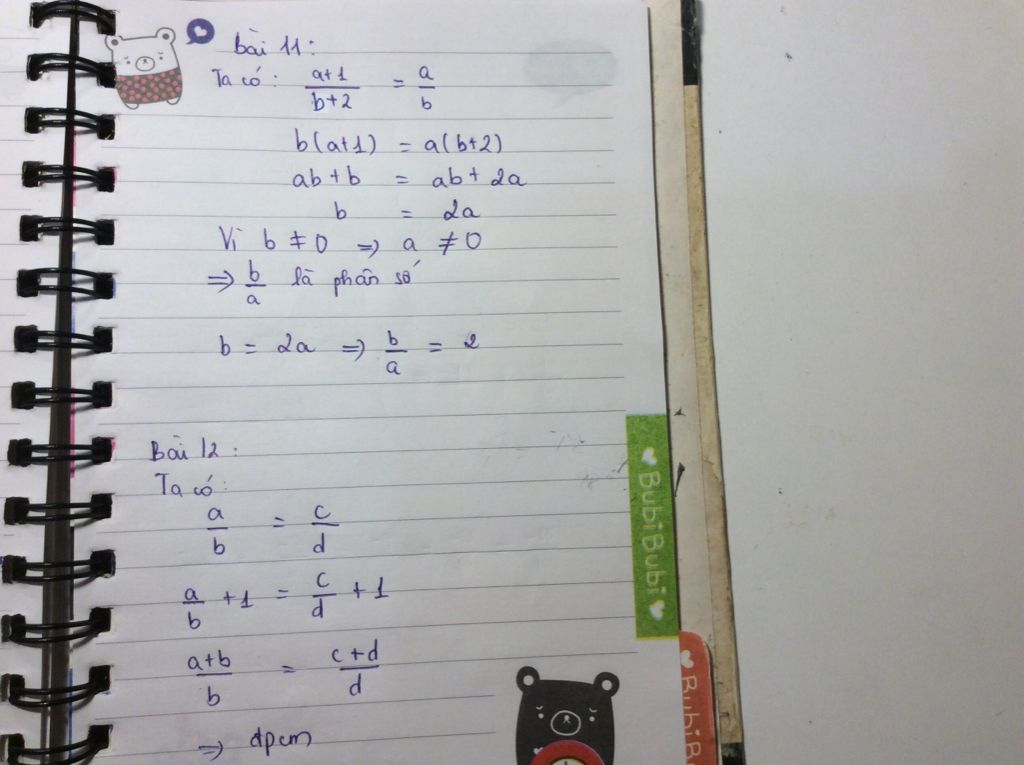 bài 11:
Ta có: (a+1)/(b+2) = a/b
b(a+1) = a(b+2)
ab + b = ab + 2a
b = 2a
Vì b ≠ 0 => a ≠ 0
=> b/a là phân số
b = 2a => b/a = 2
Bài 12:
Ta có:
a/b = c/d
a/b + 1 = c/d + 1
(a+b)/b = (c+d)/d
=> đpcm
BubiBubi
BubiB